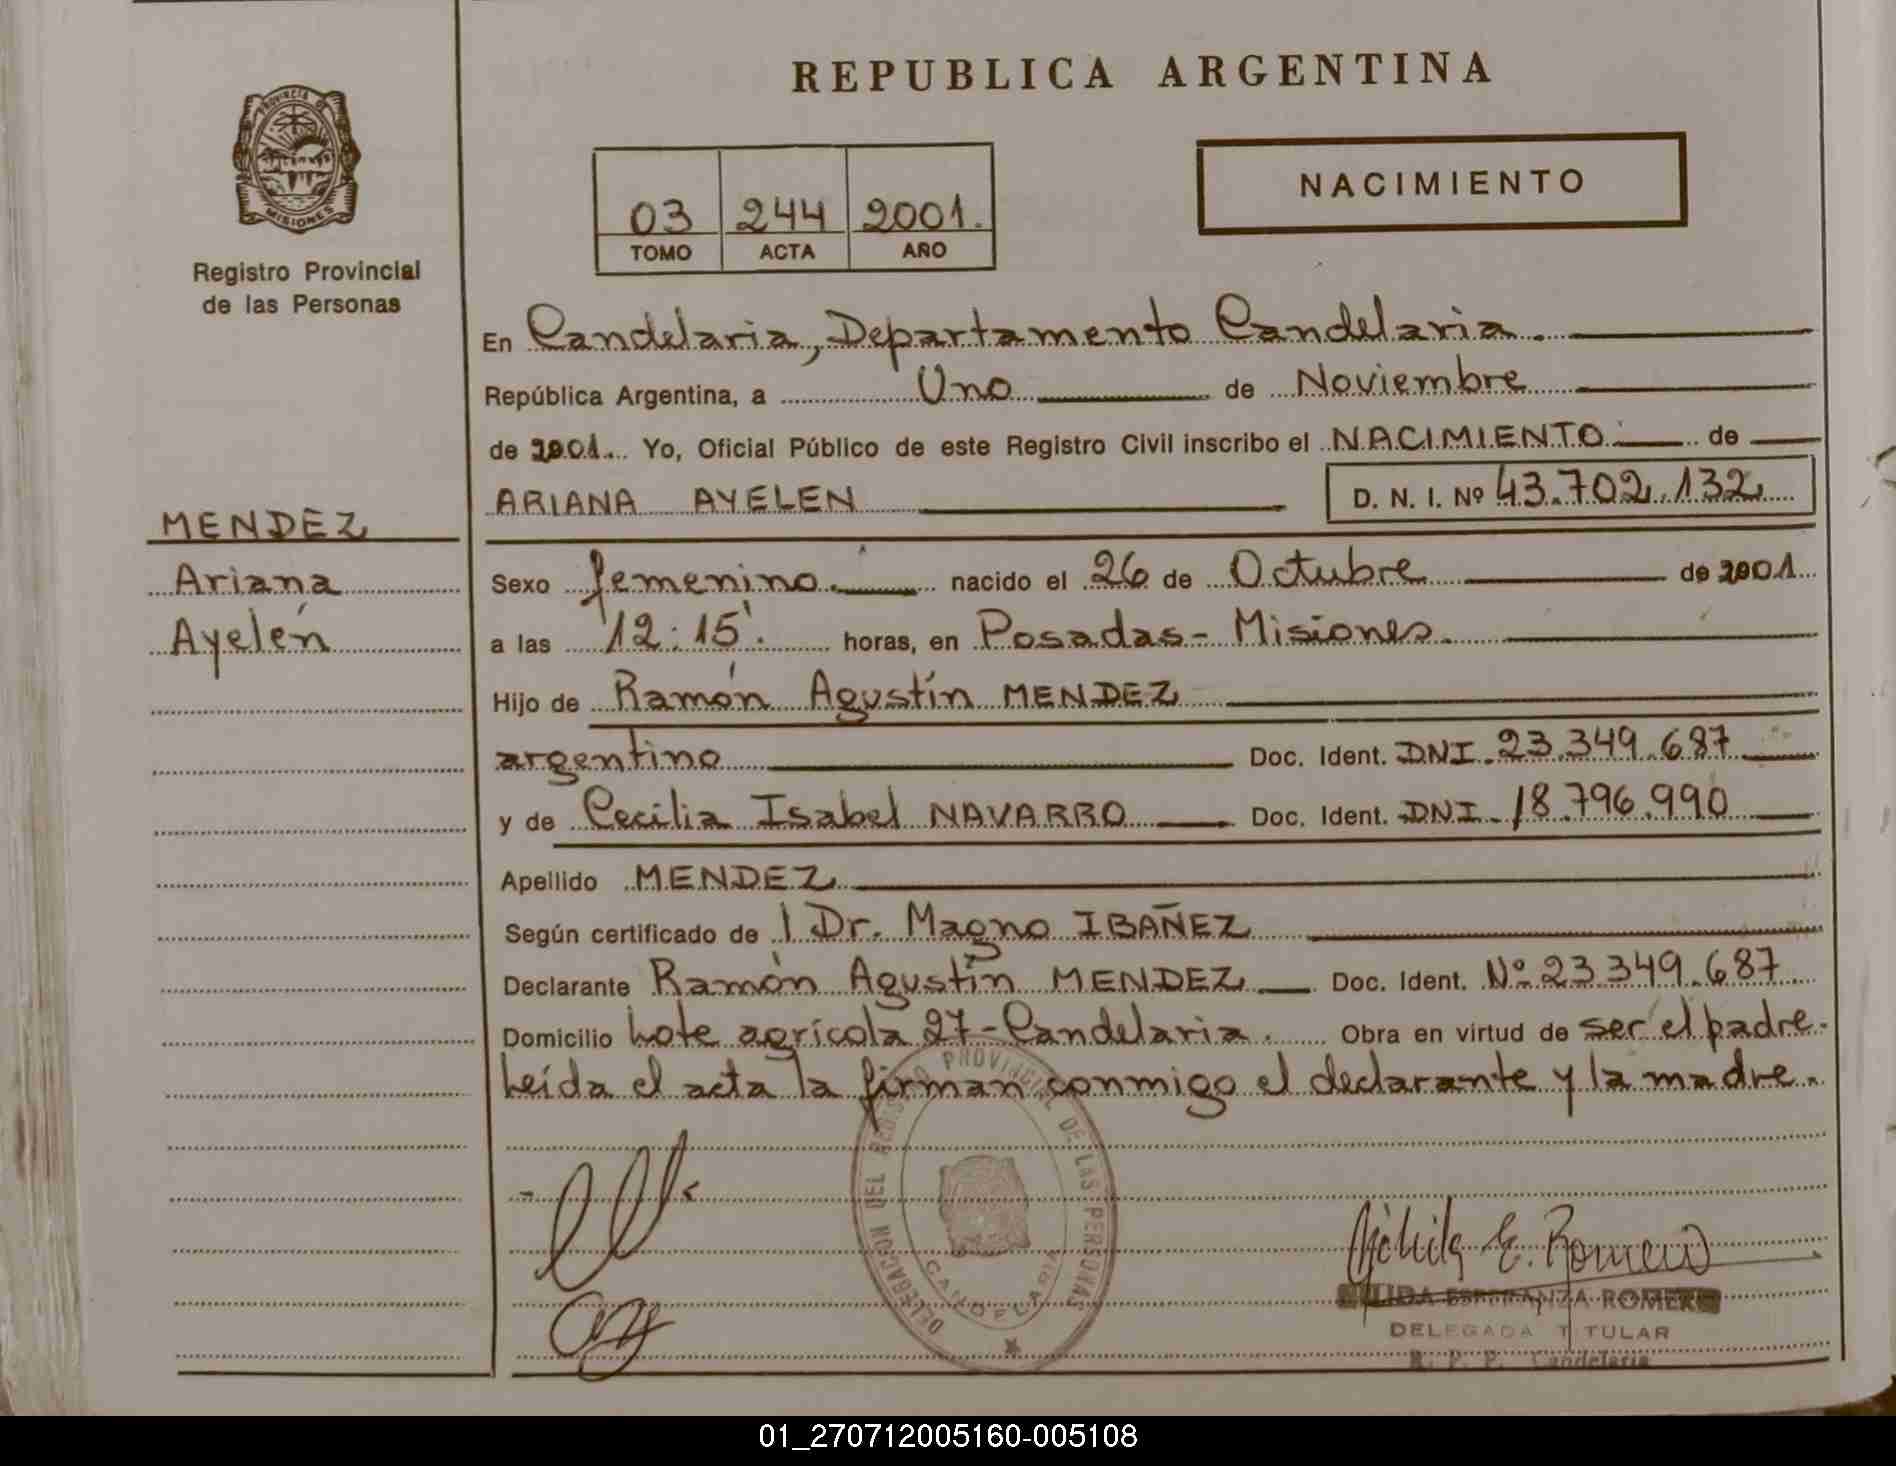 REPUBLICA ARGENTINA
PROVINCIA DE
MISIONES
Registro Provincial
de las Personas
03 244 2001.
TOMO ACTA AÑO
NACIMIENTO
En Candelaria, Departamento Candelaria.
República Argentina, a Uno de Noviembre
de 2001. Yo, Oficial Público de este Registro Civil inscribo el NACIMIENTO de
ARIANA AYELEN D. N. I. Nº 43.702.132
MENDEZ
Ariana
Ayelén
Sexo femenino. nacido el 26 de Octubre de 2001
a las 12:15'. horas, en Posadas- Misiones.
Hijo de Ramón Agustín MENDEZ
argentino Doc. Ident. DNI. 23.349.687
y de Cecilia Isabel NAVARRO Doc. Ident. DNI. 18.796.990
Apellido MENDEZ
Según certificado de Dr. Magno IBAÑEZ
Declarante Ramón Agustín MENDEZ Doc. Ident. Nº 23.349.687
Domicilio Lote agrícola 27-Candelaria. Obra en virtud de ser el padre.
Leída el acta la firman conmigo el declarante y la madre.
DELEGACION DEL REGISTRO PROVINCIAL DE LAS PERSONAS
CANDELARIA
E. Romero
ESPERANZA ROMERO
DELEGADA TITULAR
R. P. P. Candelaria
01_270712005160-005108